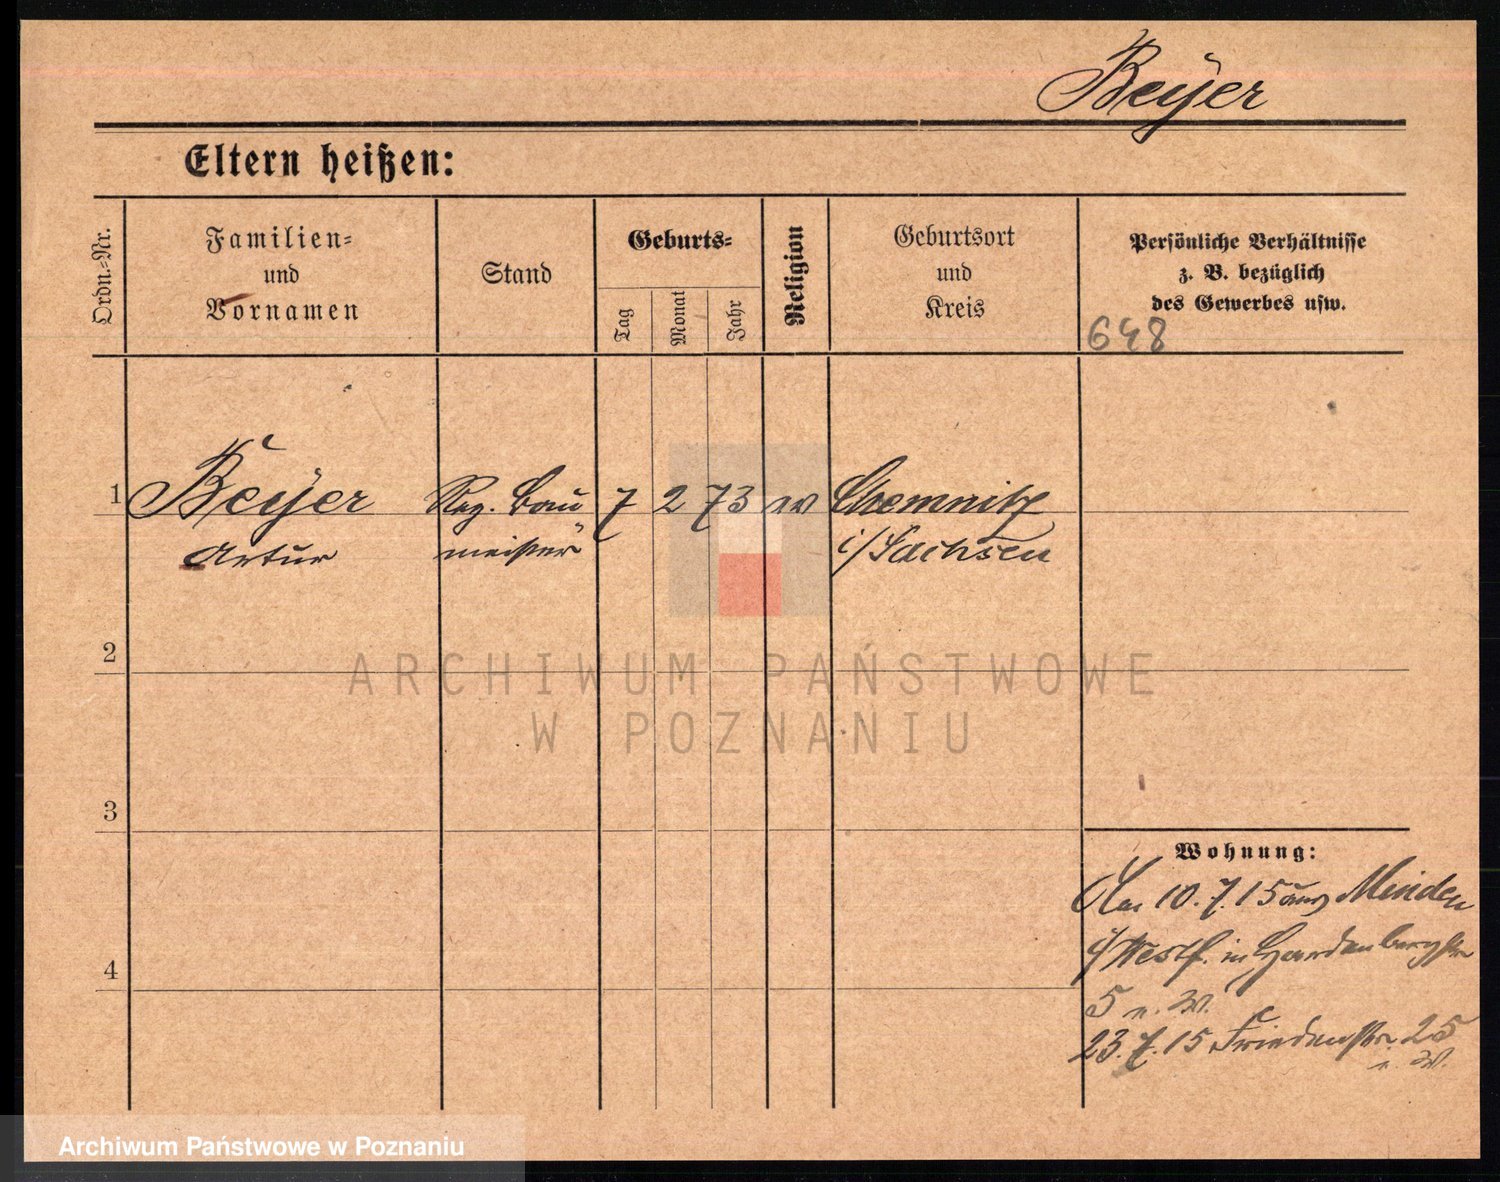 Beyer
Eltern heißen:
Ordn.-Nr.
Familien-
und
Vornamen
Stand
Geburts-
Tag
Monat
Jahr
Religion
Geburtsort
und
Kreis
Persönliche Verhältnisse
z. B. bezüglich
des Gewerbes usw.
648
1 Beyer Reg. Bau 7 2 73 ev Chemnitz
Artur meister i/Sachsen
2
ARCHIWUM PAŃSTWOWE
W POZNANIU
3
Wohnung:
10.7.15 aus Minden
i/Westf. in Hardenbergstr
4
5 n. W.
23.7.15 Friedenstr. 25
n. W.
Archiwum Państwowe w Poznaniu